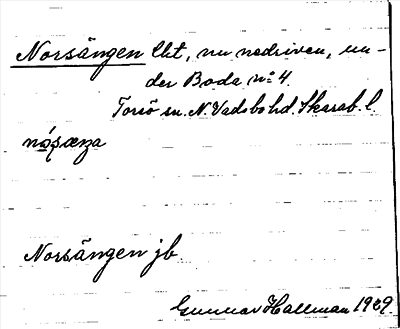 Norsängen lht, nu nedriven, un-
der Boda nº 4.
Torsö sn. N. Vadsbo hd. Skarab. l.
Norsängen jb
Gunnar Hallman 1929.